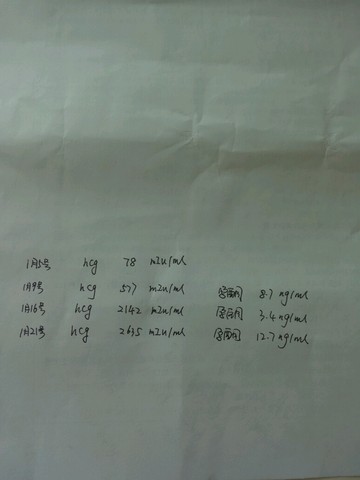 1月5号 hcg 78 mIu/ml
1月9号 hcg 577 mIu/ml 孕酮 8.7 ng/ml
1月16号 hcg 2142 mIu/ml 孕酮 3.4 ng/ml
1月21号 hcg 2695 mIu/ml 孕酮 12.7 ng/ml